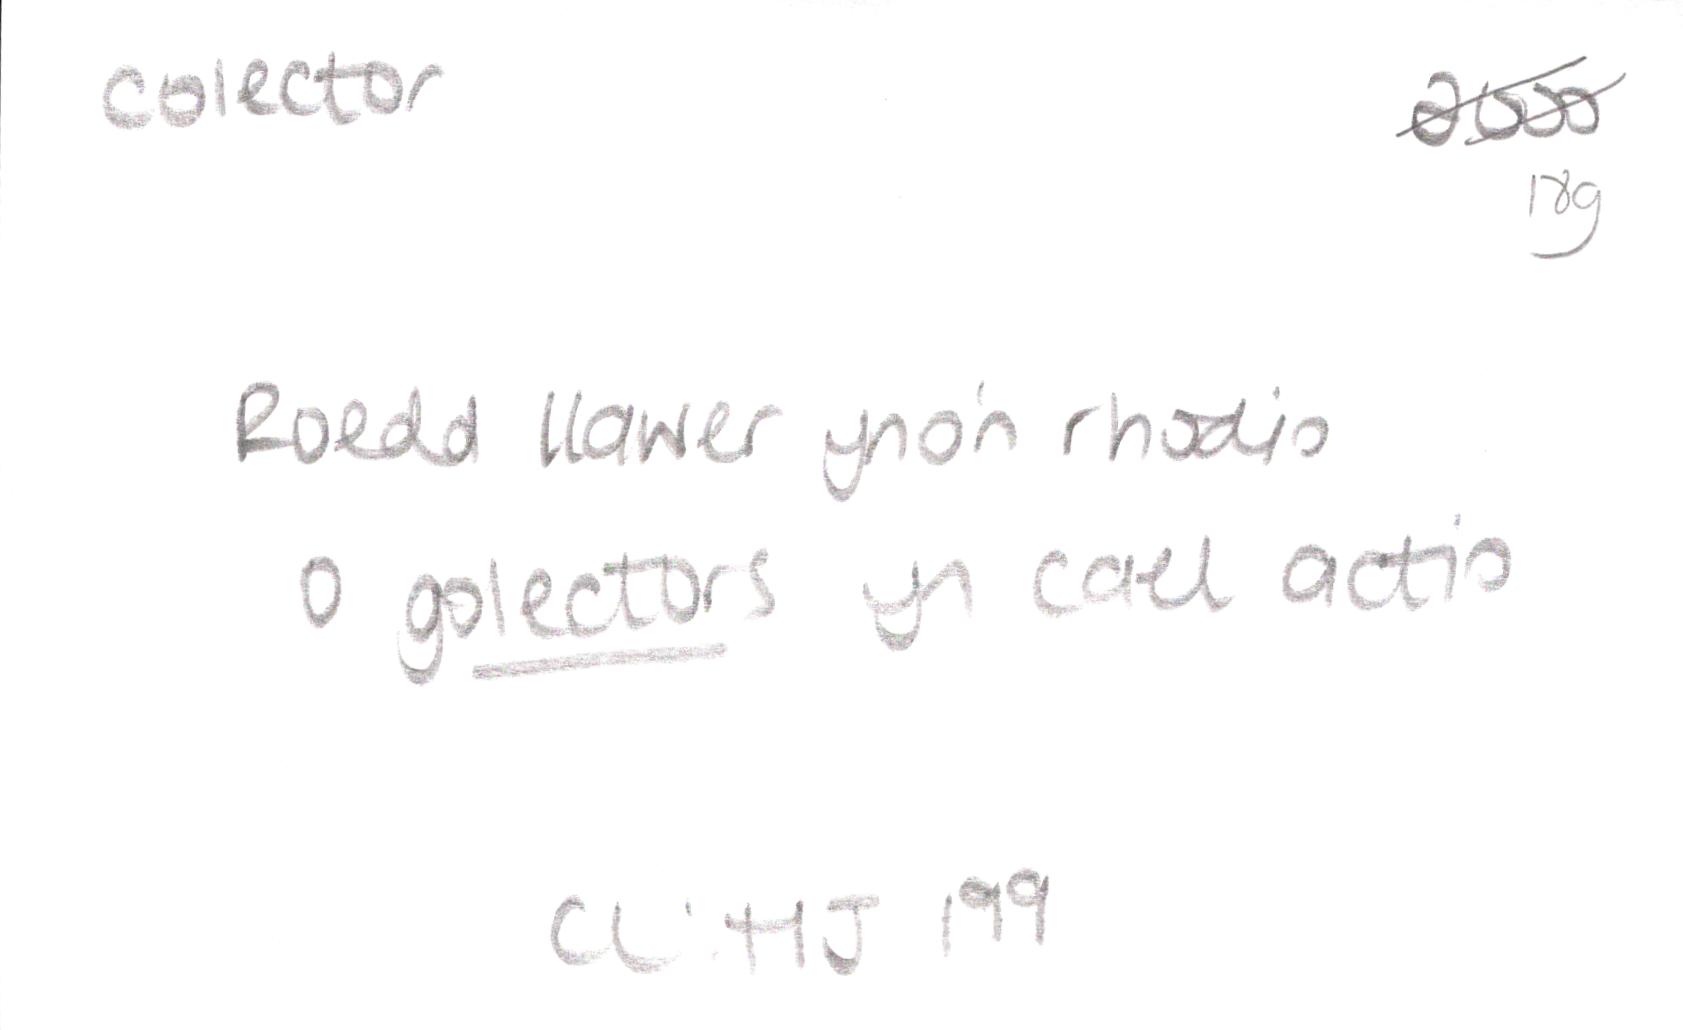 colector
2000
18g
Roedd llawer yno'n rhodio
o golectors yn cael actio
CLl:HJ 199